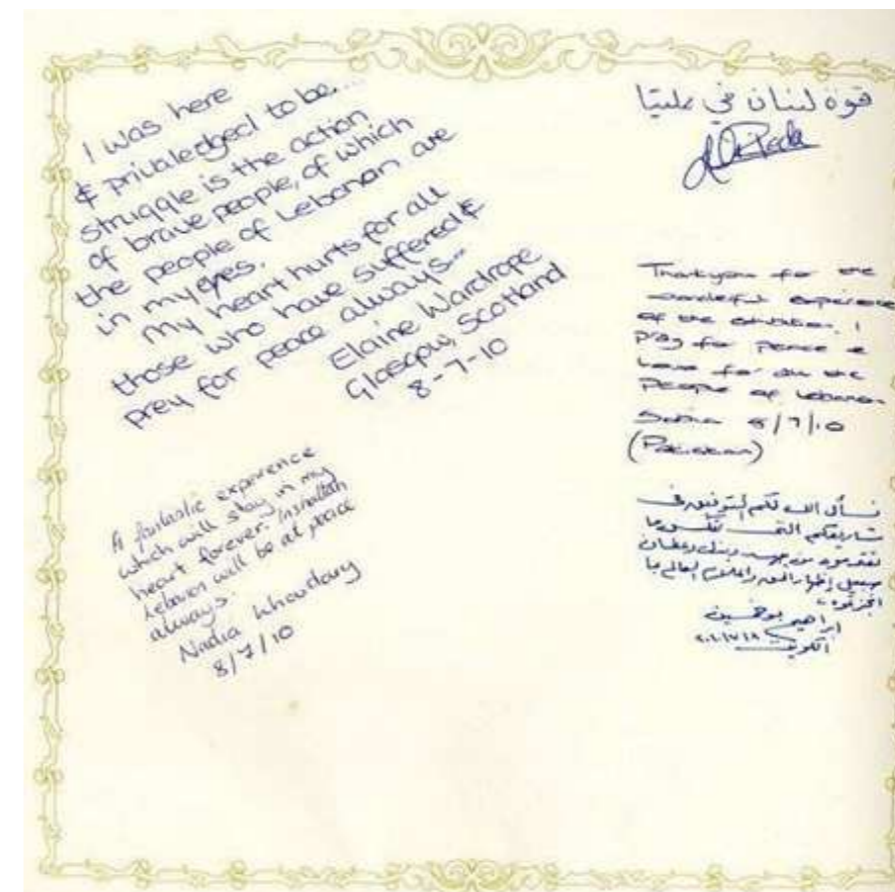 I was here
& privaledged to be....
struggle is the action
of brave people, of which
the people of Lebanon are
in my eyes.
My heart hurts for all
those who have suffered &
prey for peace always...
Elaine Wardrope
Glasgow, Scotland
8-7-10
A fantastic experience
which will stay in my
heart forever. Inshallah
Lebanon will be at peace
always.
Nadia Khowdary
8/7/10
قوة لبنان في مليتا
Thankyou for the
wonderful experience
of the exhibition. I
pray for peace &
love for all the
people of Lebanon
8/7/10
(Pakistan)
نسأل الله لكم التوفيق في
مشاريعكم التي تعكس ما
تقدمونه من جهد وبذل وعطاء في
سبيل إظهار الحق وإعلام العالم بما
انجزتموه
ابراهيم بوخمسين
الكويت ٢٠١٠/٧/٨